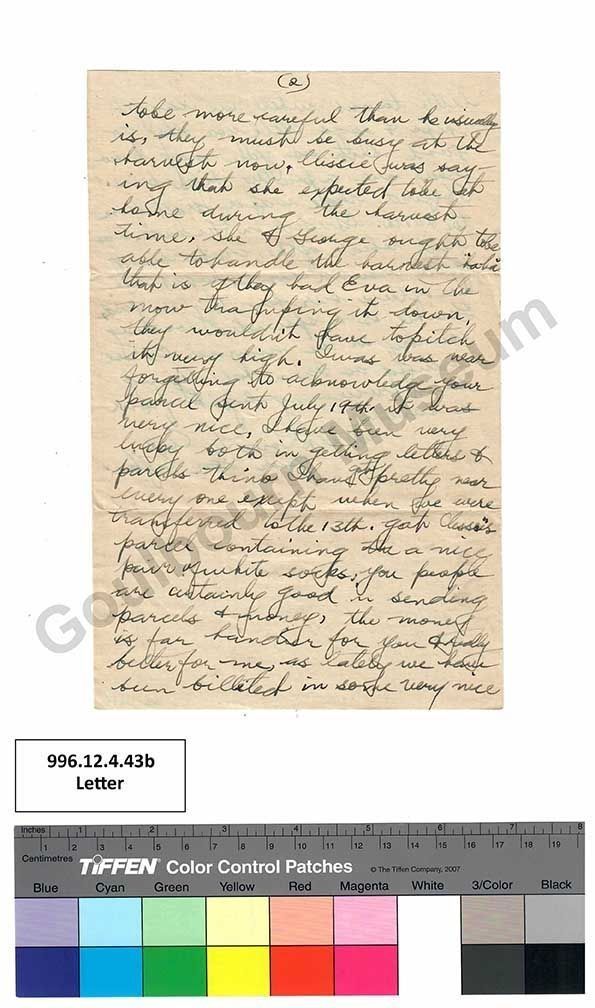 (2)
tobe more careful than he usually
is, they must be busy at the
harvest now. Clissie was say-
ing that she expected tobe at
home during the harvest
time. she & George ought tobe
able tohandle the harvest haha
that is if they had Eva in the
mow tramping it down,
they wouldn't have topitch
it very high. I was was near
forgetting to acknowledge your
parcel sent July 19th it was
very nice, I have been very
lucky both in getting letters &
parcels think I have got pretty near
every one exept when we were
transferred to the 13th. got Clissie's
parcel containing a nice
pair of white socks, you people
are certainly good in sending
parcels & money, the money
is far handier for you & really
better for me, as lately we have
been billeted in some very nice
Goulbourn Museum
996.12.4.43b
Letter
Inches 1 2 3 4 5 6 7 8
Centimetres 1 2 3 4 5 6 7 8 9 10 11 12 13 14 15 16 17 18 19
TIFFEN Color Control Patches © The Tiffen Company, 2007
Blue Cyan Green Yellow Red Magenta White 3/Color Black